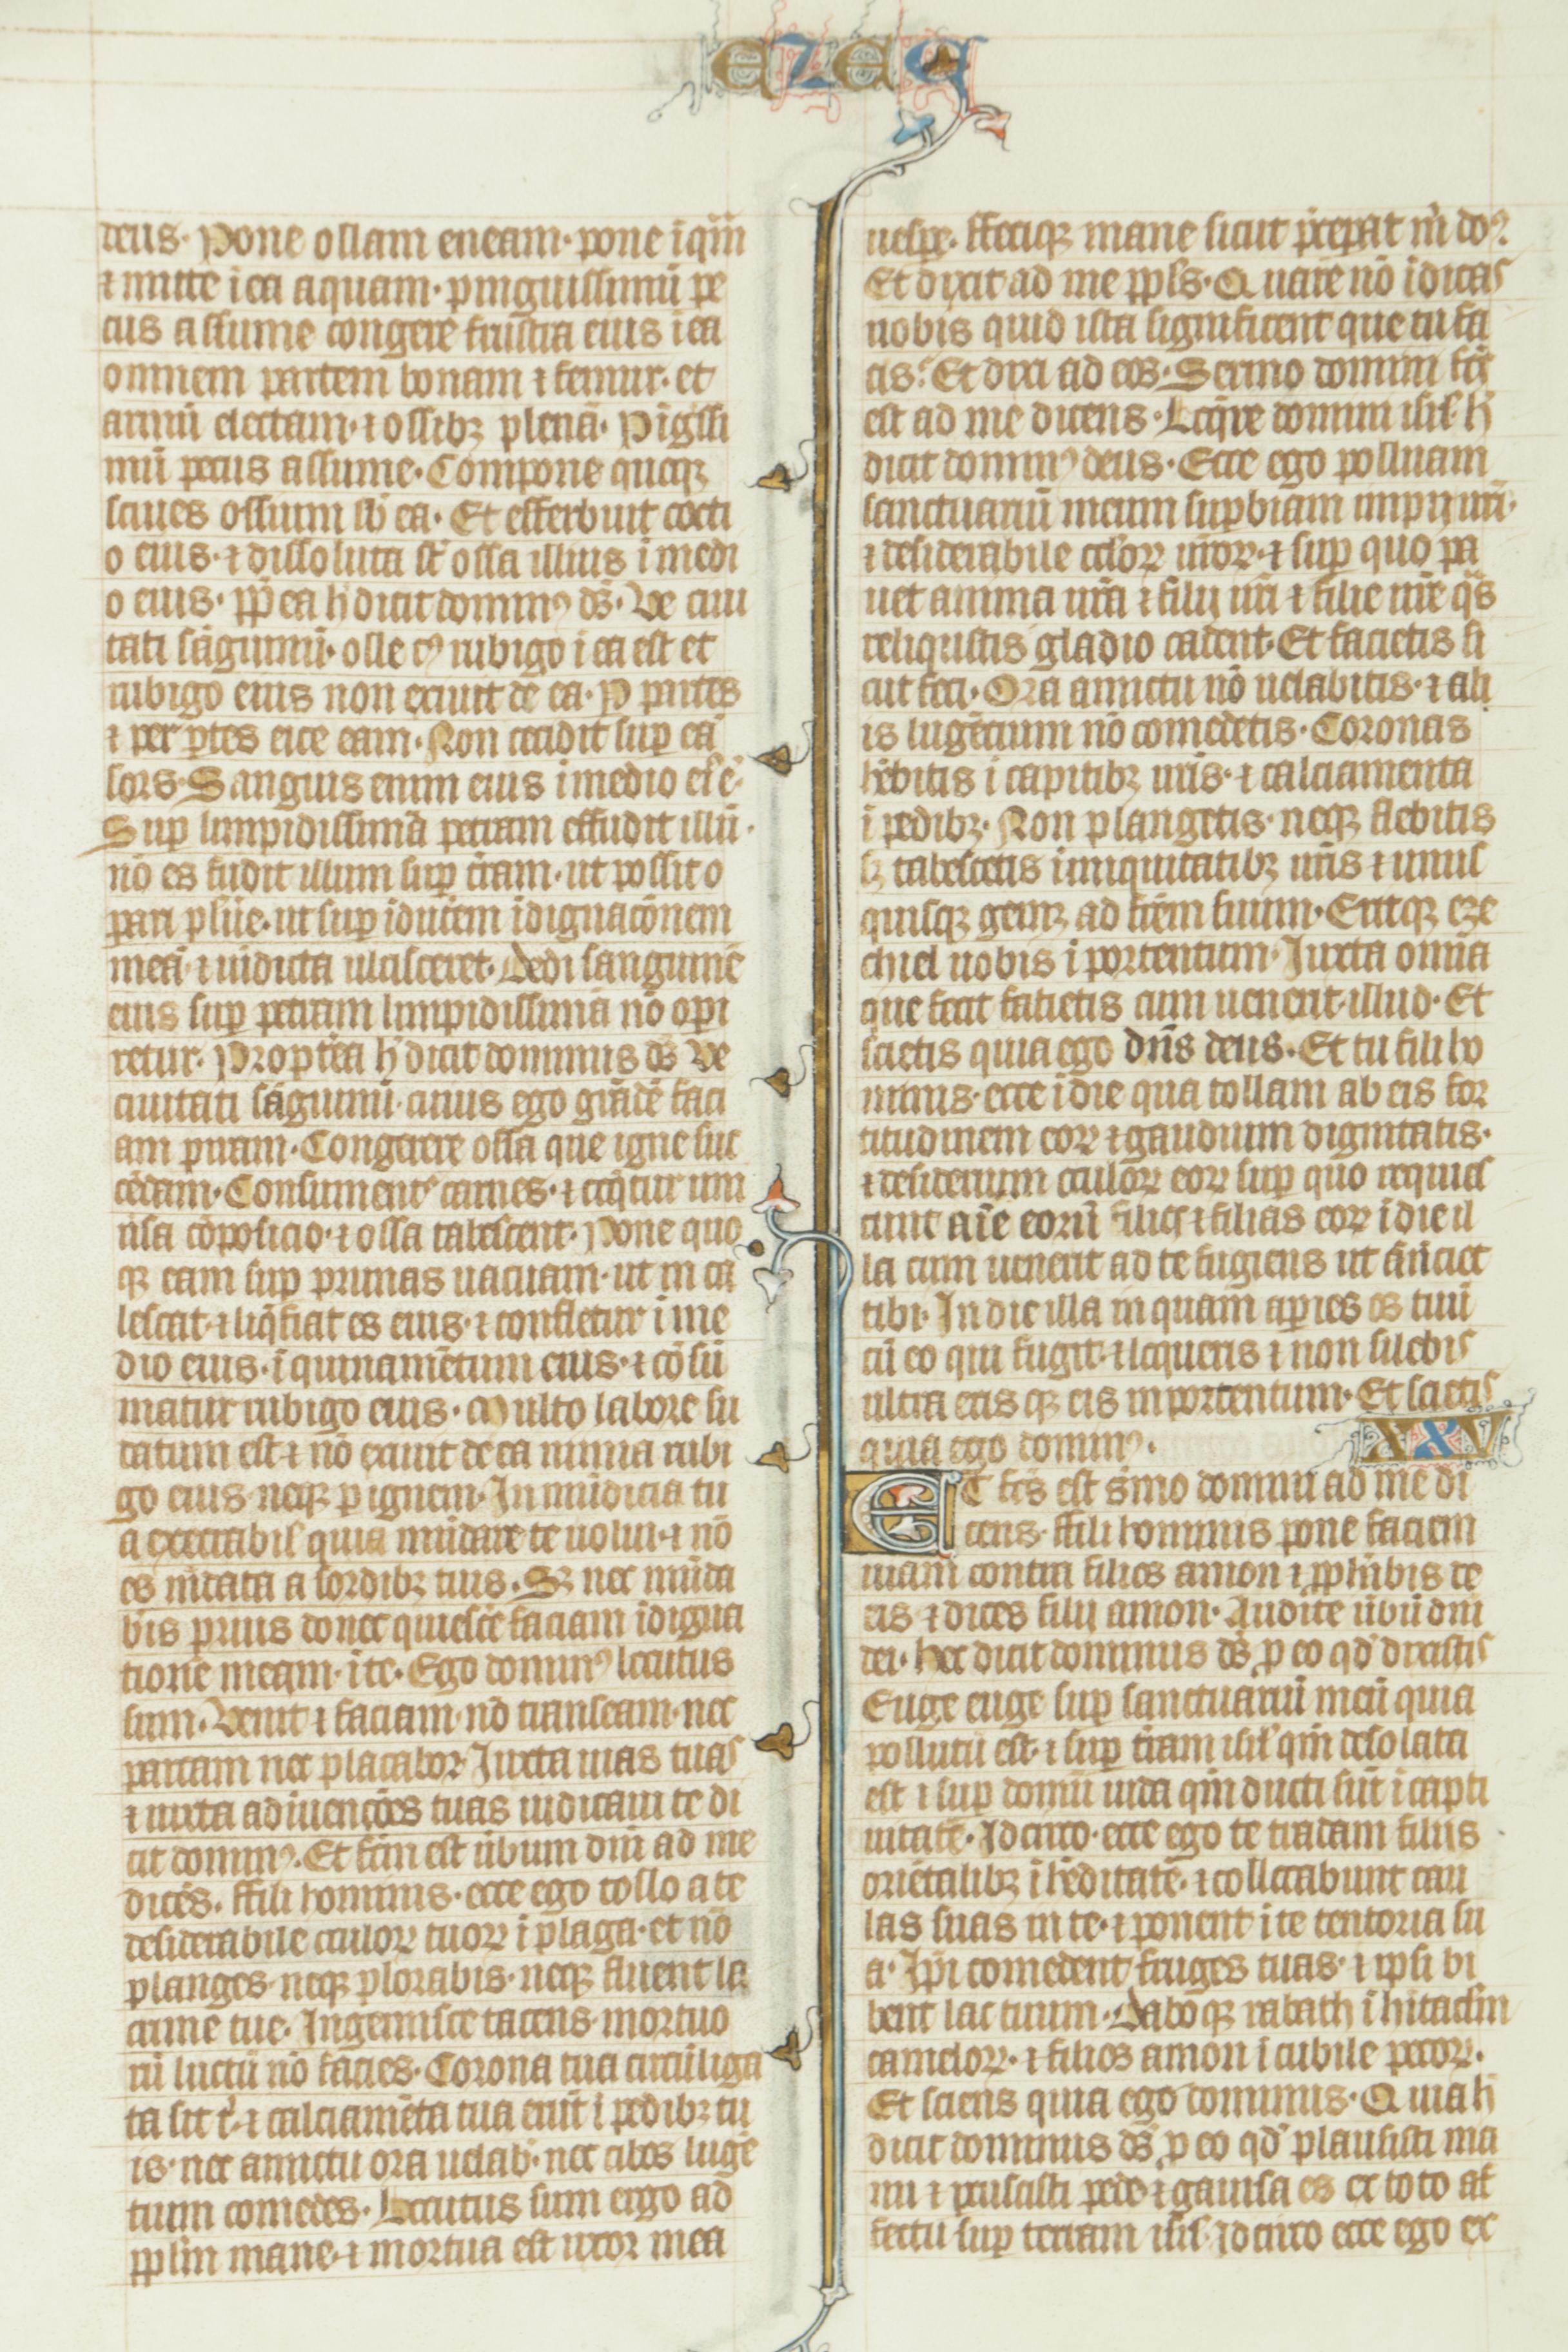 EZEC
deus. Pone ollam eneam. pone īquā
⁊ mitte ī ea aquam. pinguissimū pe
cus assume congere frustra eius ī ea
omnem partem bonam ⁊ femur. et
armū electam. ⁊ ossibꝫ plenā. Pīgissi
mū pecus assume. Compone quoqꝫ
strues ossium sb̄ ea. Et efferbuit cocti
o eius. ⁊ dissoluta st̄ ossa illius ī medi
o eius. ꝓp̄ ea h̄ dicit dominꝰ ds̄. Ve ciui
tati sāguinū. olle cꝰ rubigo ī ea est et
rubigo eius non exiuit de ea. P partes
⁊ per ꝑtes eice eam. Non cecidit suꝑ eā
sors. Sanguis enim eius ī medio eiꝰ ē.
Suꝑ limpidissimā petram effudit illū.
nō effudit illum suꝑ t̄ram. ut possit o
periri pluē. ut suꝑ īducerem īdignac̄onem
meā ⁊ uīdicta ulciscerer. Dedi sanguinē
eius suꝑ petram limpidissimā nō opi
retur. Propt̄ea h̄ dicit dominus ds̄ Ve
ciuitati sāguinū. cuius ego grādē faci
am piram. Congerere ossa que igne suc
cēdam. Consumentᷣ carnes. ⁊ coq̄tur uni
usa cōposicio. ⁊ ossa tabescent. Pone quo
qꝫ eam suꝑ prunas uacuam. ut in ca
lescat. ⁊ liq̄fiat es eius. ⁊ confletur ī me
dio eius. ī quinamētum eius. ⁊ cōsū
matur rubigo eius. Multo labore su
datum est ⁊ nō exiuit de ea nimia rubi
go eius neqꝫ ꝑ ignem. Inmūdicia tu
a execrabil̄ quia mūdare te uolui. ⁊ nō
es mūdata a sordibꝫ tuis. Sꝫ nec mūda
bis prius donec quiescē faciam īdigna
tionē meam. ī te. Ego dominꝰ locutus
sum. Venit ⁊ faciam. nō transeam. nec
parcam nec placabor Juxta uias tuas
⁊ iuxta adīuenc̄oes tuas iudicaui te di
cit dominꝰ. Et fc̄m est ūbum dn̄i ad me
dicēs. ffili hominis. ecce ego tollo a te
desiderabile oculoꝝ tuoꝝ ī plaga. et nō
planges. neqꝫ plorabis. neqꝫ fluent la
crime tue. Ingemisce tacens. mortuo
rū luctū nō facies. Corona tua circūliga
ta sit t̄. ⁊ calciamēta tua erūt ī pedibꝫ tu
is. nec amictu ora uelab̄. nec cibos lugē
tium comedes. Locutus sum ergo ad
ppl̄m mane. ⁊ mortua est uxor mea
uespe. ffeciqꝫ mane sicut p̄cepat m̄ doꝰ.
Et dixit ad me ppl̄s. Quare nō īdicas
nobis quid ista significent que tu fa
cis? Et dixi ad eos. Sermo domini fcs̄
est ad me dicens. Loq̄re domui isrl̄. h̄
dicit dominꝰ deus. Ecce ego polluam
sanctuariū meum suꝑbiam impij uri.
⁊ desiderabile oc̄loꝝ ur̄oꝝ. ⁊ suꝑ quo pa
uet anima ur̄a ⁊ filij ur̄i ⁊ filie ur̄e q̄s
reliquistis gladio cadent. Et facietis si
cut feci. Ora amictu nō uelabitis. ⁊ cib
is lugētium nō comedetis. Coronas
hēbitis ī capitibꝫ ur̄is. ⁊ calciamenta
ī pedibꝫ. Non plangetis. neqꝫ flebitis
sꝫ tabescetis ī iniquitatibꝫ ur̄is ⁊ unus
quisqꝫ gemꝫ ad fr̄em suum. Eritqꝫ eze
chiel uobis ī portentum. Juxta omnia
que fecit facietis cum uenerit illud. Et
scietis quia ego dn̄s deus. Et tu fili ho
minis. ecce ī die qua tollam ab eis for
titudinem eoꝝ ⁊ gaudium dignitatis.
⁊ desiderium oculoꝝ eoꝝ suꝑ quo requies
cunt aīe eorū filios ⁊ filias eoꝝ ī die il
la cum uenerit ad te fugiens ut ānūciet
tibi. In die illa in quam aperies os tuū
cū eo qui fugit. ⁊ loqueris ⁊ non silebis
ultra eris qꝫ eis in portentum. Et scietis
quia ego dominꝰ.
XXV
Et fcs̄ est s̄mo domini ad me di
cens. ffili hominis pone faciem
tuam contra filios amon ⁊ ꝓphābis de
eis ⁊ dices filij amon. Audite ūbū dn̄i
dei. Hec dicit dominus ds̄. ꝑ eo qd̄ dixistis
Euge euge suꝑ sanctuariū meū quia
pollutū est. ⁊ suꝑ t̄ram isrl̄ qm̄ desolata
est ⁊ suꝑ domū iuda qm̄ ducti sūt ī capti
uitatē. Idcirco. ecce ego te tradam filiis
oriētalibꝫ ī hēditatē. ⁊ collocabunt cau
las suas in te. ⁊ ponent ī te tentoria su
a. Ip̄i comedent fruges tuas. ⁊ ipsi bi
bent lac tuum. Daboqꝫ rabath ī hītaclm̄
cameloꝝ. ⁊ filios amon ī cubile pecoꝝ.
Et sciens quia ego dominus. Quia h̄
dicit dominus ds̄ ꝑ eo qd̄ plausisti ma
nu ⁊ ꝑcussisti pede ⁊ gauisa es ex toto af
fectu suꝑ terram isrl̄. Idcirco ecce ego ex